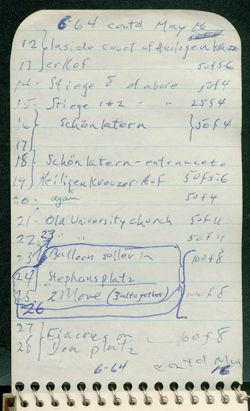 6 64 contd May 16
12 } Inside court of Heiligenkreuz
13 } erhof 50 f 5-6
14 - Stiege 8 above 50 f 4
15 - Stiege 1+2 " 25 f 4
16 } Schönlatern } 50 f 4
17
18 } Schönlatern - entrance to
19 Heiligenkreuzer Hof 50 f 5-6
20 - again 50 f 4
21 - Old University church 50 f 11
22 " " 50 f 11
23 Balloon seller in 100 f 8
24 Stephansplatz
25 2 More (3 altogether) 100 f 8
26
27 } on 100 f 8
28 Dom platz
6-64 contd May 16